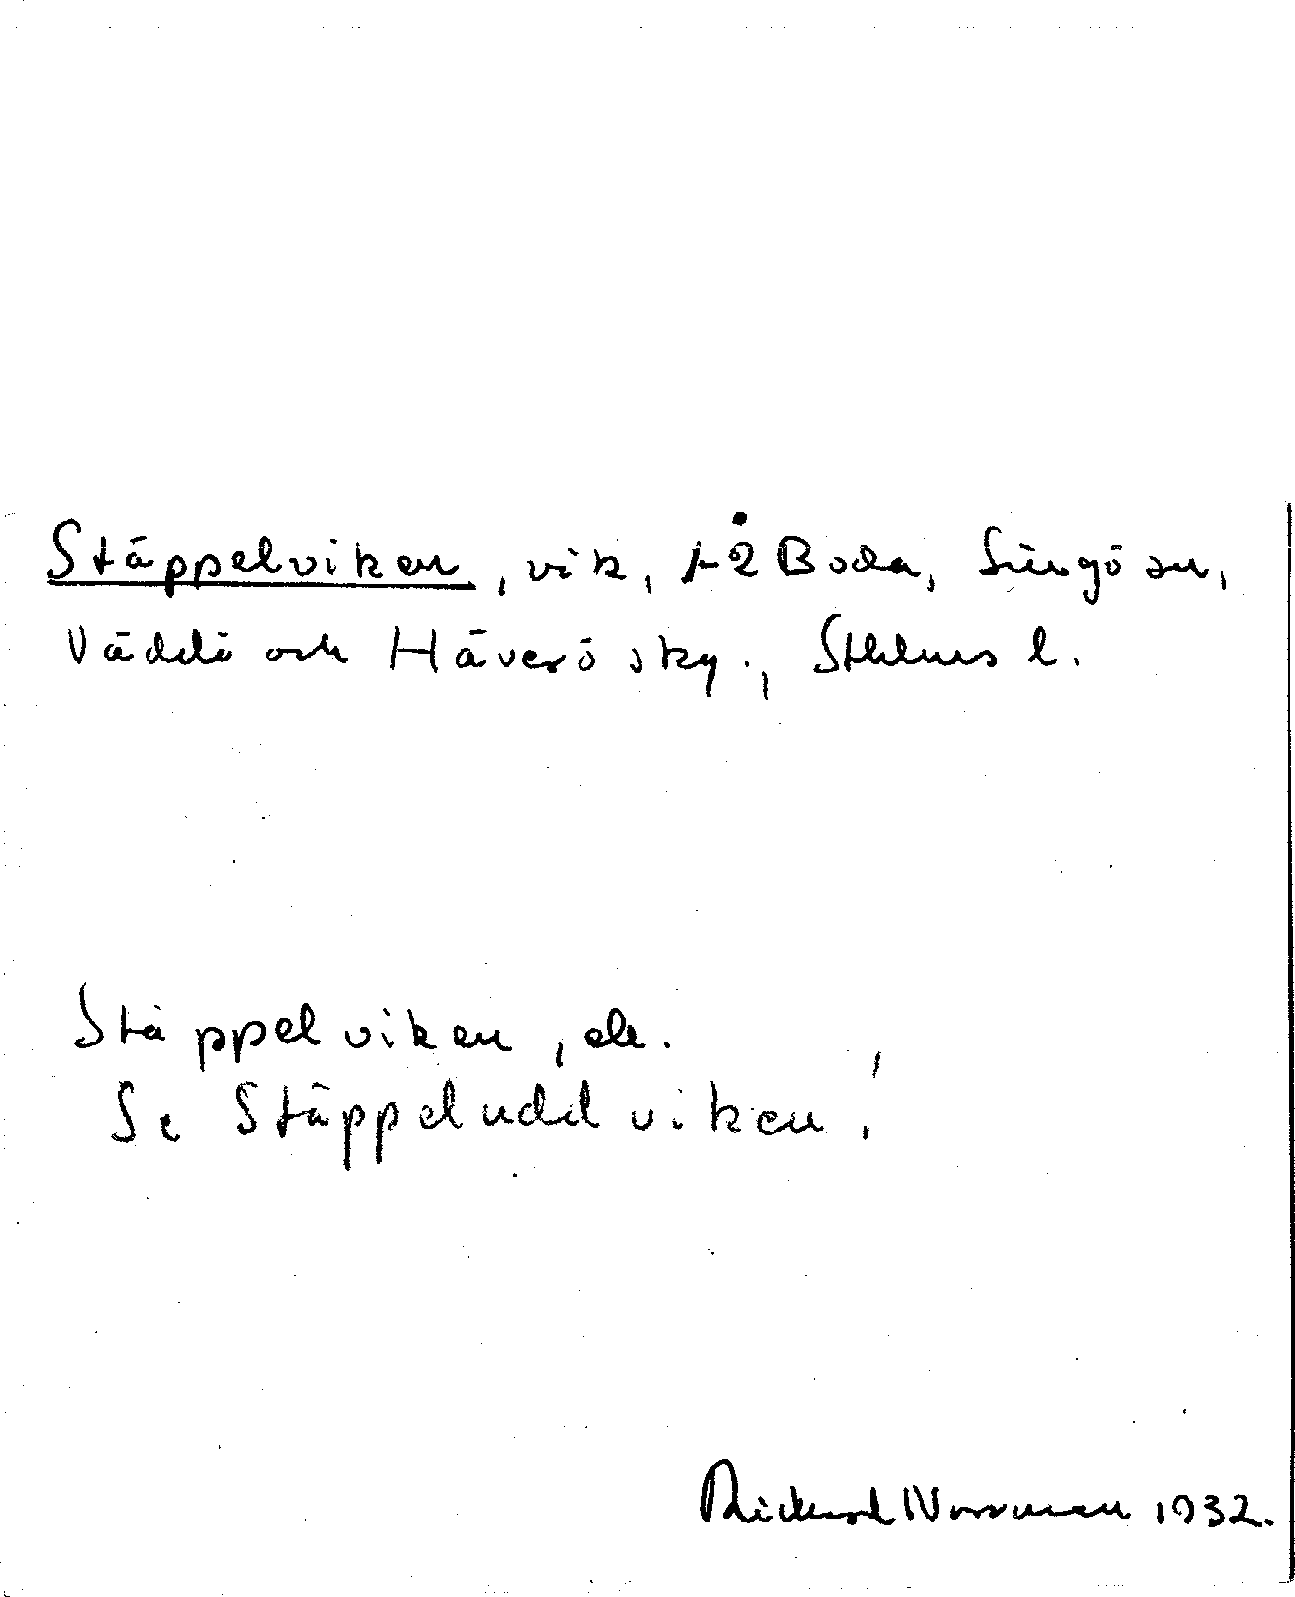 Stäppelviken, vik, 1-2 Boda, Singö sn,
Väddö och Häverö skg., Sthlms l.
Stäppelviken, de.
Se Stäppeluddviken!
Rickard Norrman 1932.